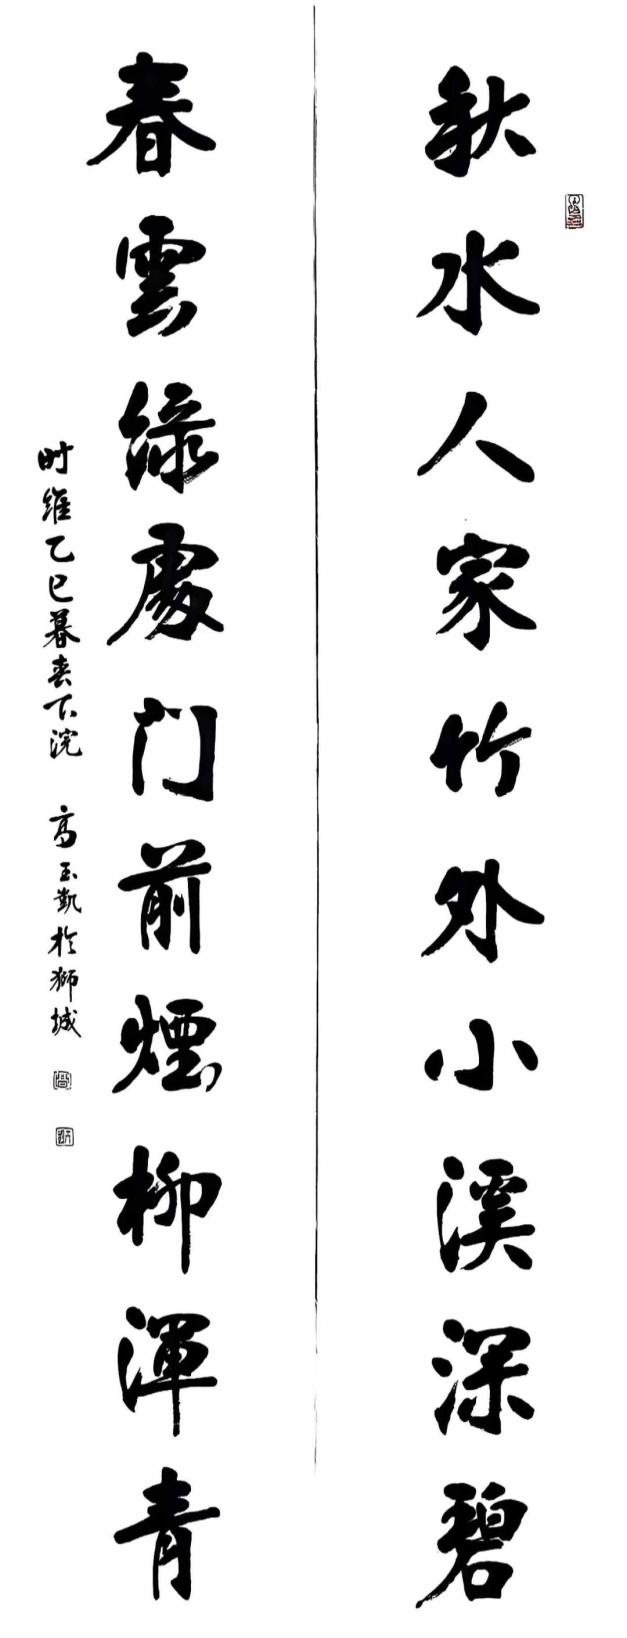 秋水人家竹外小溪深碧
春雲綠處门前煙柳渾青
时維乙巳暮春下浣 高玉凱於獅城